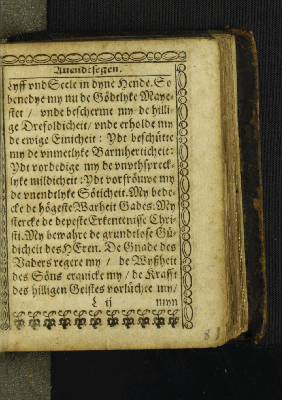 Auend-segen.
Lyff vnd Seele in dyne Hende. So
benedye my nu de Gödtlyke Maye-
stet / vnde bescherme my de hilli-
ge Drefoldicheit / vnde erholde my
de ewige Einicheit: Ydt beschütte
my de vnmetlyke Barmherticheit:
Ydt vordedige my de vnvthspreck-
lyke mildicheit: Ydt vorfröuwe my
de vnendtlyke Söticheit. My bede-
cke de högeste Warheit Gades. My
stercke de depeste Erkentenisse Chri-
sti. My beware de grundtlose Gü-
dicheit des HEren. De Gnade des
Vaders regere my / de Wyßheit
des Söns erquicke my / de Krafft
des hilligen Geistes vorlüchte my /
L ij myn
81